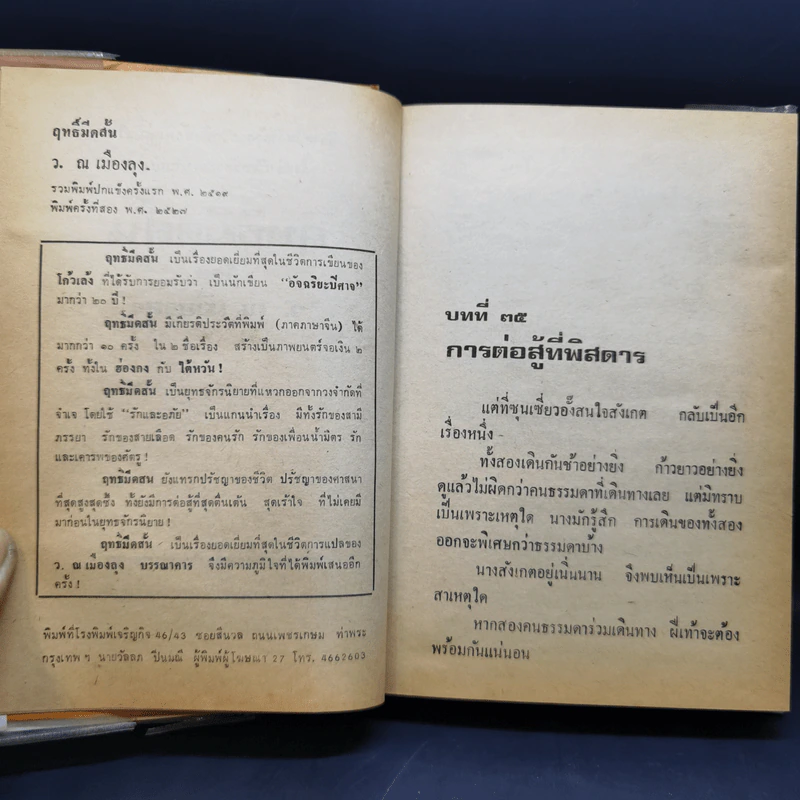 ฤทธิ์มีดสั้น
ว. ณ เมืองลุง.
รวมพิมพ์ปกแข็งครั้งแรก พ.ศ. ๒๕๑๙
พิมพ์ครั้งที่สอง พ.ศ. ๒๕๒๗
ฤทธิ์มีดสั้น เป็นเรื่องยอดเยี่ยมที่สุดในชีวิตการเขียนของ
โก้วเล้ง ที่ได้รับการยอมรับว่า เป็นนักเขียน "อัจฉริยะปีศาจ"
มากว่า ๒๐ ปี!
ฤทธิ์มีดสั้น มีเกียรติประวัติที่พิมพ์ (ภาคภาษาจีน) ได้
มากกว่า ๑๐ ครั้ง ใน ๒ ชื่อเรื่อง สร้างเป็นภาพยนตร์จอเงิน ๒
ครั้ง ทั้งใน ฮ่องกง กับ ไต้หวัน!
ฤทธิ์มีดสั้น เป็นยุทธจักรนิยายที่แหวกออกจากวงจำกัดที่
จำเจ โดยใช้ "รักและอภัย" เป็นแกนนำเรื่อง มีทั้งรักของสามี
ภรรยา รักของสายเลือด รักของคนรัก รักของเพื่อนน้ำมิตร รัก
และเคารพของศัตรู!
ฤทธิ์มีดสั้น ยังแทรกปรัชญาของชีวิต ปรัชญาของศาสนา
ที่สุดสูงสุดซึ้ง ทั้งยังมีการต่อสู้ที่สุดตื่นเต้น สุดเร้าใจ ที่ไม่เคยมี
มาก่อนในยุทธจักรนิยาย!
ฤทธิ์มีดสั้น เป็นเรื่องยอดเยี่ยมที่สุดในชีวิตการแปลของ
ว. ณ เมืองลุง บรรณาคาร จึงมีความภูมิใจที่ได้พิมพ์เสนออีก
ครั้ง!
พิมพ์ที่โรงพิมพ์เจริญกิจ 46/43 ซอยสีนวล ถนนเพชรเกษม ท่าพระ
กรุงเทพฯ นายวัลลภ ปิ่นมณี ผู้พิมพ์ผู้โฆษณา 27 โทร. 4662603
บทที่ ๓๕
การต่อสู้ที่พิสดาร
แต่ที่ซุนเซี่ยวอั้งสนใจสังเกต กลับเป็นอีก
เรื่องหนึ่ง
ทั้งสองเดินกันช้าอย่างยิ่ง ก้าวยาวอย่างยิ่ง
ดูแล้วไม่ผิดกว่าคนธรรมดาที่เดินทางเลย แต่มิทราบ
เป็นเพราะเหตุใด นางมักรู้สึก การเดินของทั้งสอง
ออกจะพิเศษกว่าธรรมดาบ้าง
นางสังเกตอยู่เนิ่นนาน จึงพบเห็นเป็นเพราะ
สาเหตุใด
หากสองคนธรรมดาร่วมเดินทาง ฝีเท้าจะต้อง
พร้อมกันแน่นอน